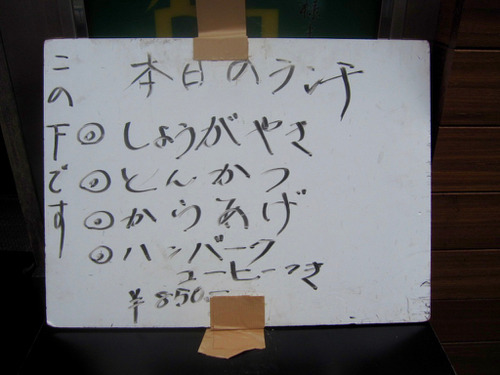 本日のランチ
この下です
◎しょうがやき
◎とんかつ
◎からあげ
◎ハンバーク
コーヒーつき
¥850-